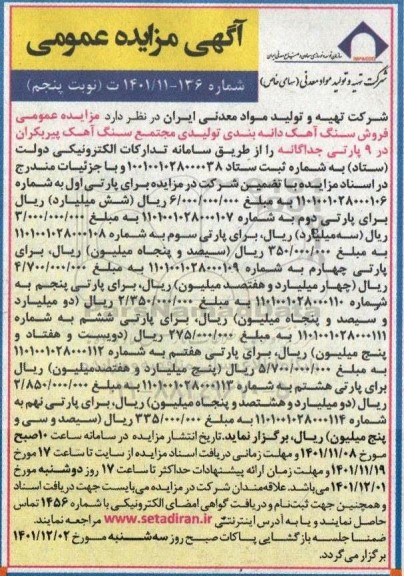 آگهی مزایده عمومی
شماره ۱۳۶-۱۴۰۱/۱۱ ت (نوبت پنجم)
سازمان توسعه و نوسازی معادن و صنایع معدنی ایران
شرکت تهیه و تولید مواد معدنی (سهامی خاص)
شرکت تهیه و تولید مواد معدنی ایران در نظر دارد مزایده عمومی
فروش سنگ آهک دانه بندی تولیدی مجتمع سنگ آهک پیربکران
در ۹ پارتی جداگانه را از طریق سامانه تدارکات الکترونیکی دولت
(ستاد) به شماره ثبت ستاد ۱۱۰۱۰۰۱۰۲۸۰۰۰۰۳۸ و با جزئیات مندرج
در اسناد مزایده با تضمین شرکت در مزایده برای پارتی اول به شماره
۱۱۰۱۰۰۱۰۲۸۰۰۰۱۰۶ به مبلغ ۶/۰۰۰/۰۰۰/۰۰۰ ریال (شش میلیارد) ریال
برای پارتی دوم به شماره ۱۱۰۱۰۰۱۰۲۸۰۰۰۱۰۷ به مبلغ ۳/۰۰۰/۰۰۰/۰۰۰
ریال (سه میلیارد) ریال، برای پارتی سوم به شماره ۱۱۰۱۰۰۱۰۲۸۰۰۰۱۰۸
به مبلغ ۳۵۰/۰۰۰/۰۰۰ ریال (سیصد و پنجاه میلیون) ریال، برای
پارتی چهارم به شماره ۱۱۰۱۰۰۱۰۲۸۰۰۰۱۰۹ به مبلغ ۴/۷۰۰/۰۰۰/۰۰۰
ریال (چهار میلیارد و هفتصد میلیون) ریال، برای پارتی پنجم به
شماره ۱۱۰۱۰۰۱۰۲۸۰۰۰۱۱۰ به مبلغ ۲/۳۵۰/۰۰۰/۰۰۰ ریال (دو میلیارد
و سیصد و پنجاه میلیون) ریال، برای پارتی ششم به شماره
۱۱۰۱۰۰۱۰۲۸۰۰۰۱۱۱ به مبلغ ۲۷۵/۰۰۰/۰۰۰ ریال (دویست و هفتاد و
پنج میلیون) ریال، برای پارتی هفتم به شماره ۱۱۰۱۰۰۱۰۲۸۰۰۰۱۱۲
به مبلغ ۵/۷۰۰/۰۰۰/۰۰۰ ریال (پنج میلیارد و هفتصدمیلیون) ریال
برای پارتی هشتم به شماره ۱۱۰۱۰۰۱۰۲۸۰۰۰۱۱۳ به مبلغ ۲/۸۵۰/۰۰۰/۰۰۰
ریال (دو میلیارد و هشتصد و پنجاه میلیون) ریال، برای پارتی نهم به
شماره ۱۱۰۱۰۰۱۰۲۸۰۰۰۱۱۴ به مبلغ ۳۳۵/۰۰۰/۰۰۰ ریال (سیصد و سی و
پنج میلیون) ریال، برگزار نماید. تاریخ انتشار مزایده در سامانه ساعت ۱۰صبح
مورخ ۱۴۰۱/۱۱/۰۸ و مهلت زمانی دریافت اسناد مزایده از سایت تا ساعت ۱۷ مورخ
۱۴۰۱/۱۱/۱۹ و مهلت زمان ارائه پیشنهادات حداکثر تا ساعت ۱۷ روز دوشنبه مورخ
۱۴۰۱/۱۲/۰۱ می باشد. علاقه‌مندان شرکت در مزایده می‌بایست جهت دریافت اسناد
و همچنین جهت ثبت‌نام و دریافت گواهی امضای الکترونیکی با شماره ۱۴۵۶ تماس
حاصل نمایند و یا به آدرس اینترنتی www.setadiran.ir مراجعه نمایند.
ضمنا جلسه بازگشایی پاکات صبح روز سه‌شنبه مورخ ۱۴۰۱/۱۲/۰۲
برگزار می گردد.